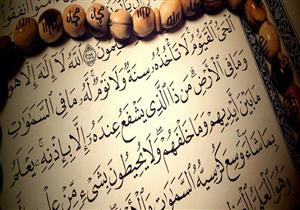 ٱللَّهُ لَآ إِلَٰهَ إِلَّا
ٱلْحَىُّ ٱلْقَيُّومُ لَا تَأْخُذُهُۥ سِنَةٌ وَلَا نَوْمٌ لَّهُۥ مَا فِى ٱلسَّمَٰوَٰتِ
وَمَا فِى ٱلْأَرْضِ مَن ذَا ٱلَّذِى يَشْفَعُ عِندَهُۥٓ إِلَّا بِإِذْنِهِۦ يَعْلَمُ
مَا بَيْنَ أَيْدِيهِمْ وَمَا خَلْفَهُمْ وَلَا يُحِيطُونَ بِشَىْءٍ مِّنْ
بِمَا شَآءَ وَسِعَ كُرْسِيُّهُ ٱلسَّمَٰوَٰتِ وَٱلْأَرْضَ
وَهُوَ ٱلْعَلِىُّ